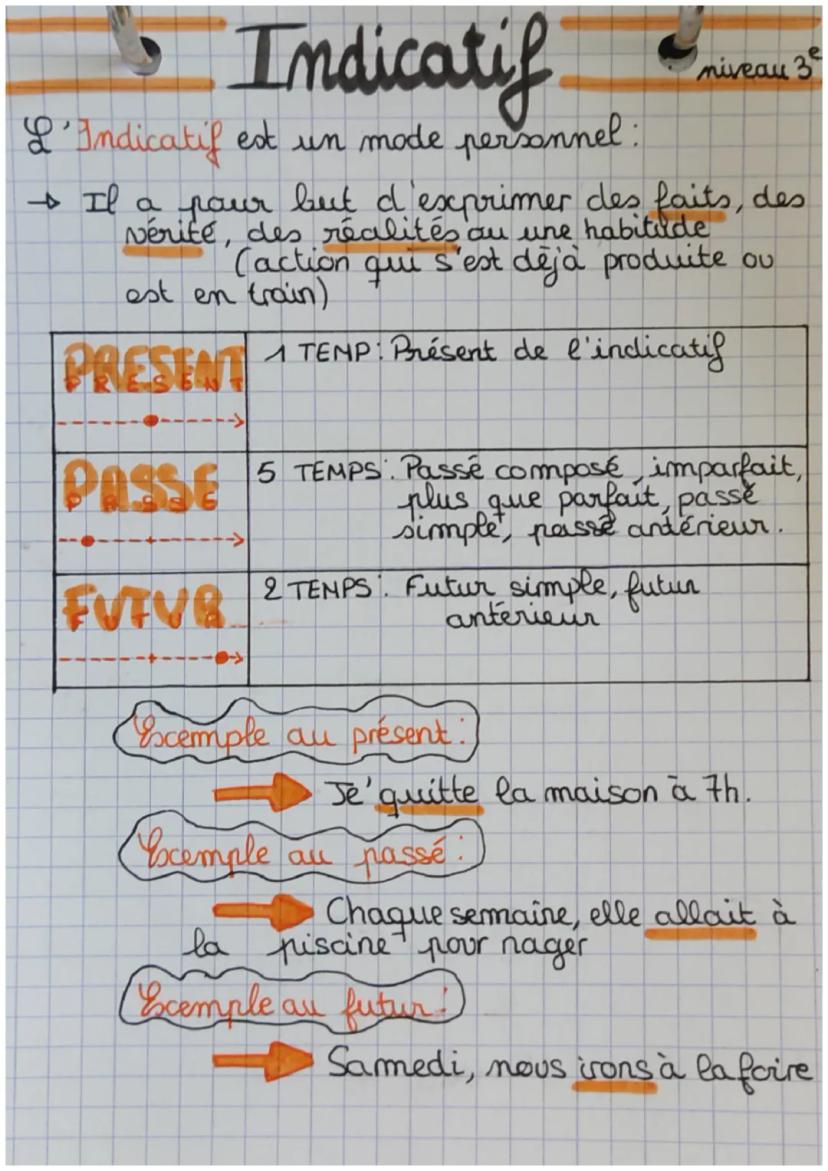 Indicatif
niveau 3e
L'Indicatif est un mode personnel :
→ Il a pour but d'exprimer des faits, des
vérité, des réalités ou une habitude
(action qui s'est déjà produite ou
est en train)
PRESENT
PRESENT
1 TEMP : Présent de l'indicatif
PASSE
PASSE
5 TEMPS : Passé composé, imparfait,
plus que parfait, passé
simple, passé antérieur.
FUTUR
2 TEMPS : Futur simple, futur
antérieur
Exemple au présent :
Je' quitte la maison à 7h.
Exemple au passé :
Chaque semaine, elle allait à
la piscine pour nager
Exemple au futur :
Samedi, nous irons à la foire